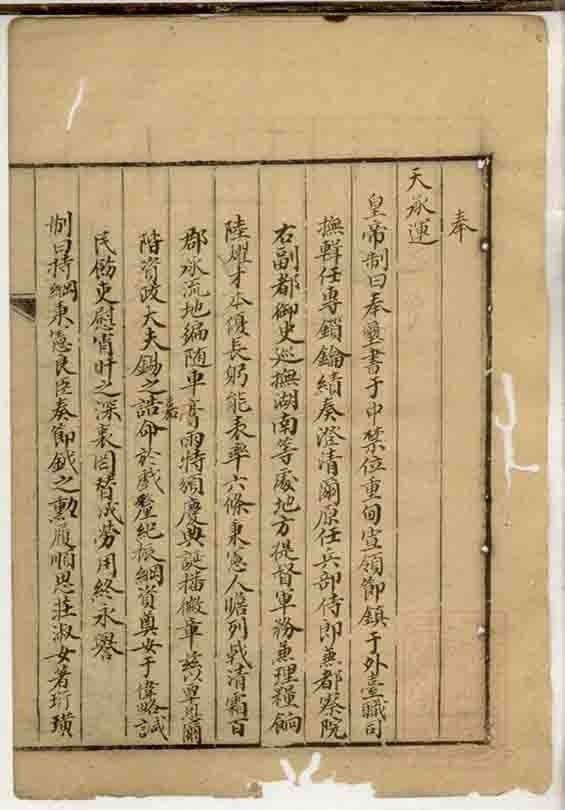 奉
天承運
皇帝制曰奉璽書于中禁位重旬宣領節鎮于外臺職司
撫輯任專鎖鑰績奏澄清爾原任兵部侍郎兼都察院
右副都御史巡撫湖南等處地方提督軍務兼理糧餉
陸燿才本優長躬能表率六條秉憲人瞻列戟清霜百
郡承流地徧隨車膏雨特頒慶典誕播徽章茲以覃恩爾
階資政大夫錫之誥命於戲釐紀振綱資奠安于偉略諴
民飭吏慰宵旰之深衷罔替成勞用終永譽
制曰持綱秉憲民臣奏節鉞之勳履順思莊淑女著珩璜